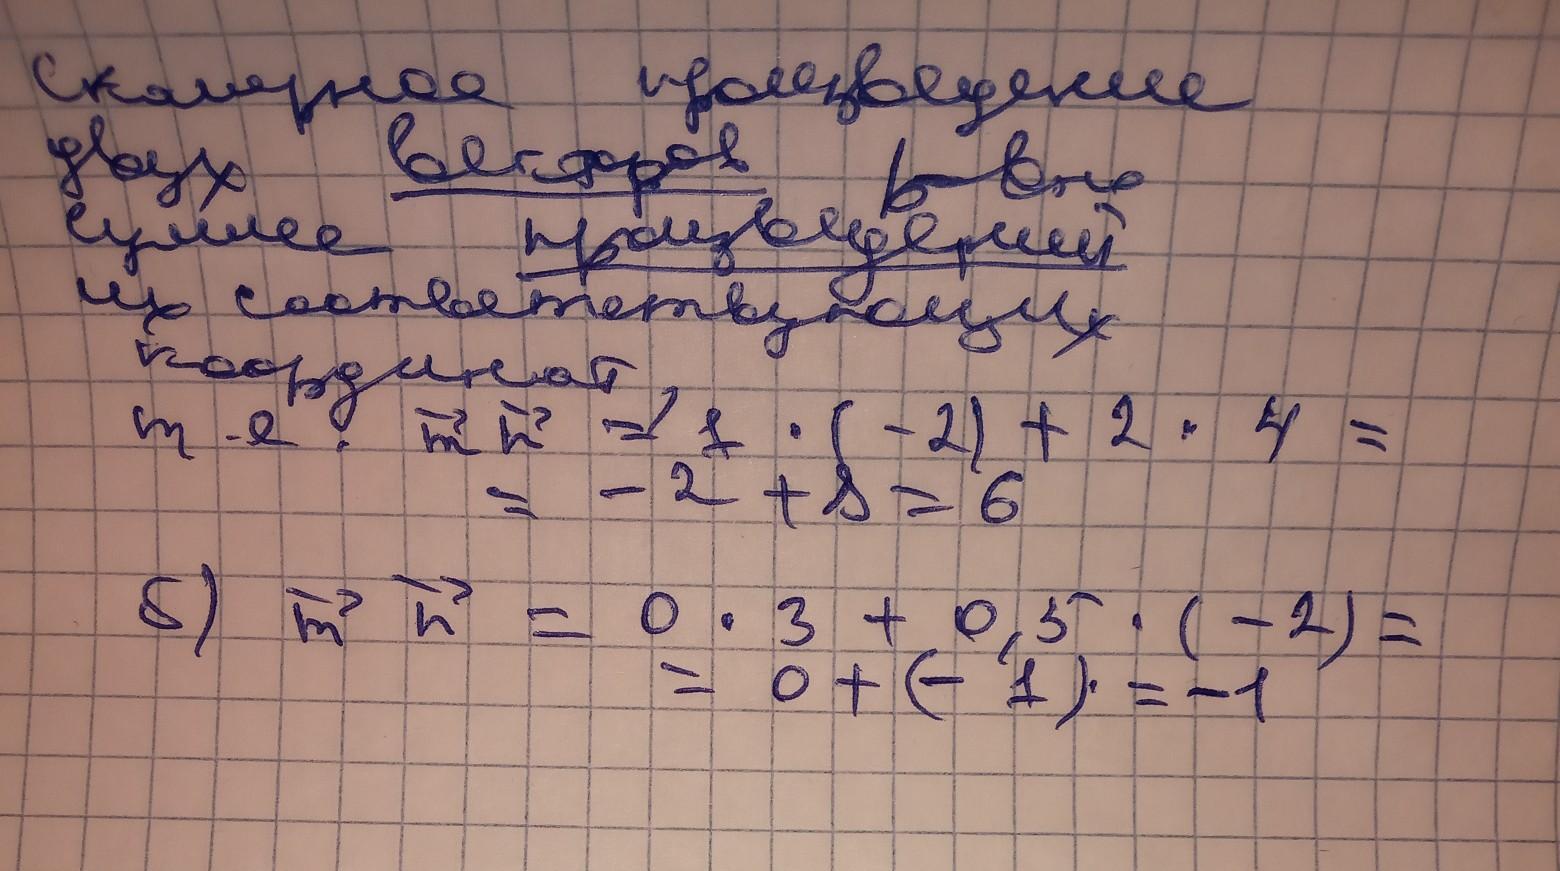 Скалярное произведение
двух векторов равно
сумме произведений
их соответствующих
координат,
т.е. m⃗ n⃗ = 1 · (-2) + 2 · 4 =
= -2 + 8 = 6
б) m⃗ n⃗ = 0 · 3 + 0,5 · (-2) =
= 0 + (-1) = -1